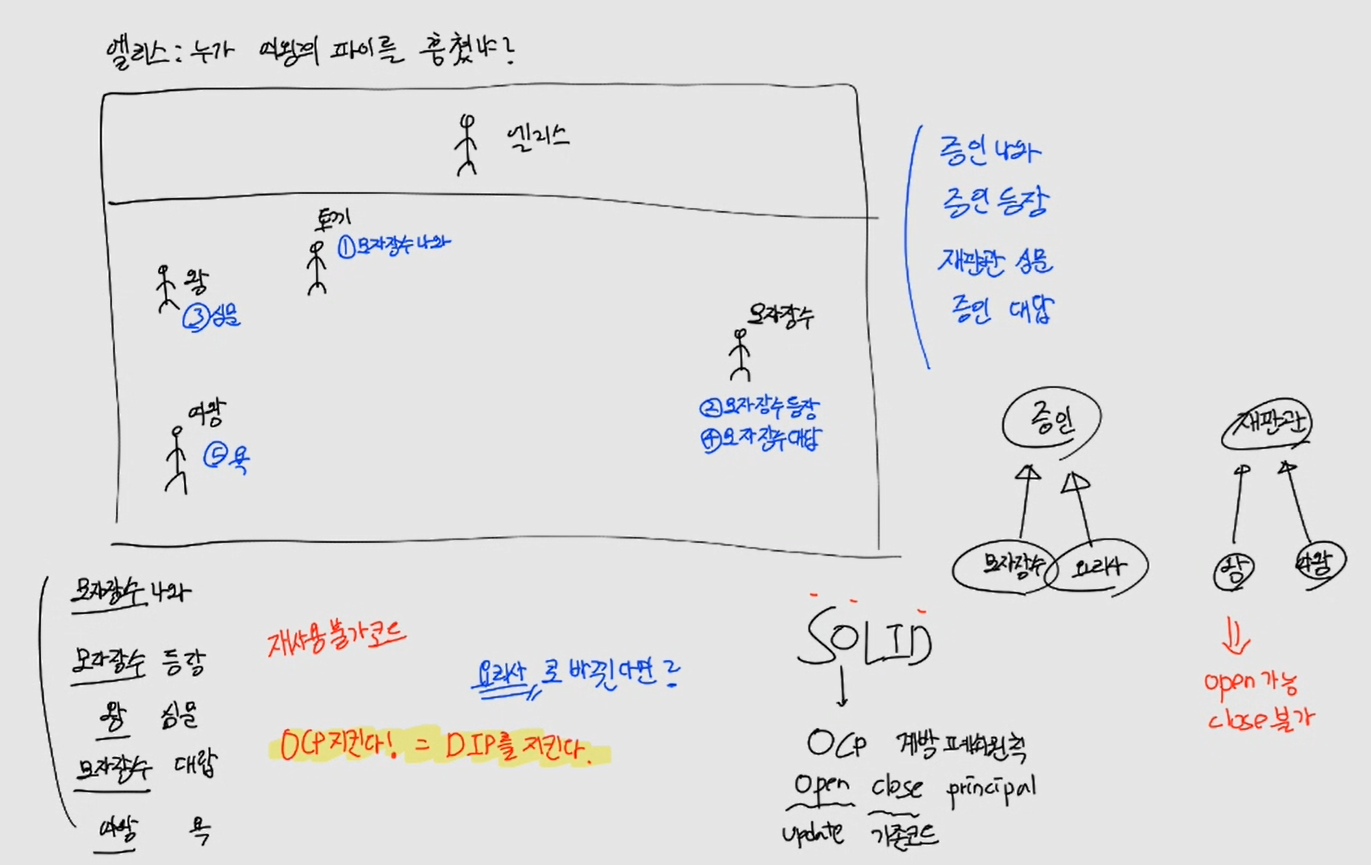 엘리스 : 누가 여왕의 파이를 훔쳤냐?
엘리스
토끼
① 모자장수 나와
왕
③ 심문
모자장수
② 모자장수 등장
④ 모자장수 대답
여왕
⑤ 욕
증인 나와
증인 등장
재판관 심문
증인 대답
증인
모자장수
요리사
재판관
왕
여왕
open 가능
close 불가
모자장수 나와
모자장수 등장
왕 심문
모자장수 대답
여왕 욕
재사용불가코드
요리사로 바뀐다면?
OCP 지킨다! = DIP를 지킨다.
SOLID
OCP 개방폐쇄원칙
open close principal
update 기존코드